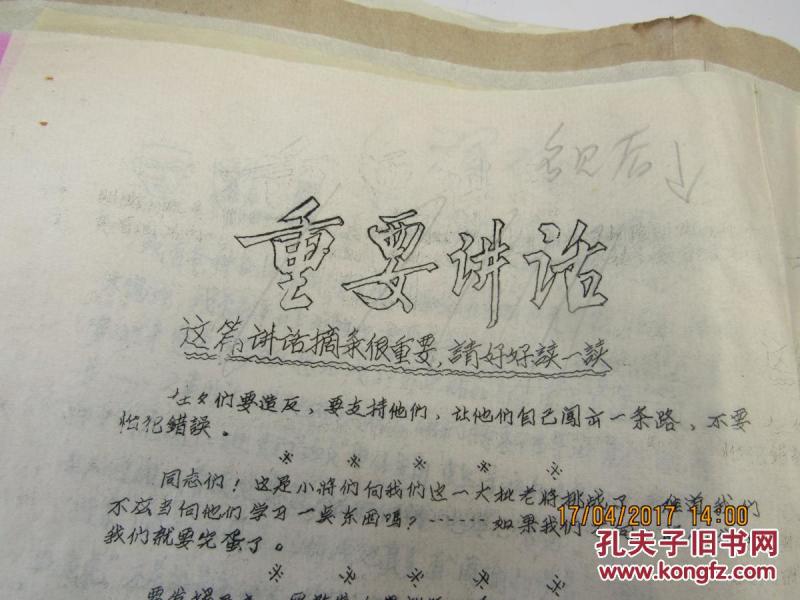 重要讲话
这篇讲话摘条很重要,請好好談一談
娃々们要造反,要支持他们,让他们自己闯出一条路,不要
怕犯错誤。
※ ※ ※ ※ ※
同志们!这是小將们向我们这一大批老將挑战了,
不应当向他们学习一点东西嗎?……如果我们
我们就要完蛋了。
※ ※ ※ ※ ※
17/04/2017 14:00
孔夫子旧书网
www.kongfz.com